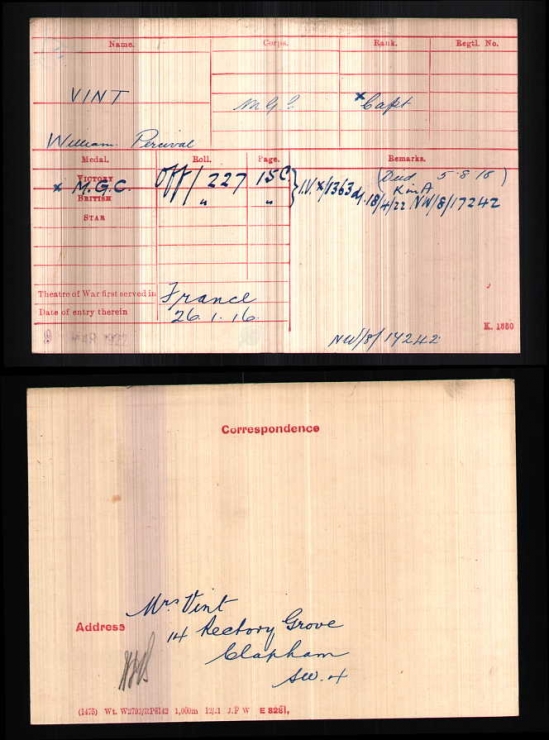 Name. Corps. Rank. Regtl. No.
VINT M.G.C. × Capt
William Percival
Medal. Roll. Page. Remarks.
VICTORY
× M.G.C. Off/227 15C } I.V. ×/1363 d/. 18/4/22 NW/8/17242 (Died 5-8-16)
K in A
BRITISH " "
STAR
Theatre of War first served in France
Date of entry therein 26.1.16.
K. 1380
NW/8/17242
Correspondence
Mrs Vint
Address 14 Rectory Grove
Clapham
S.W.4